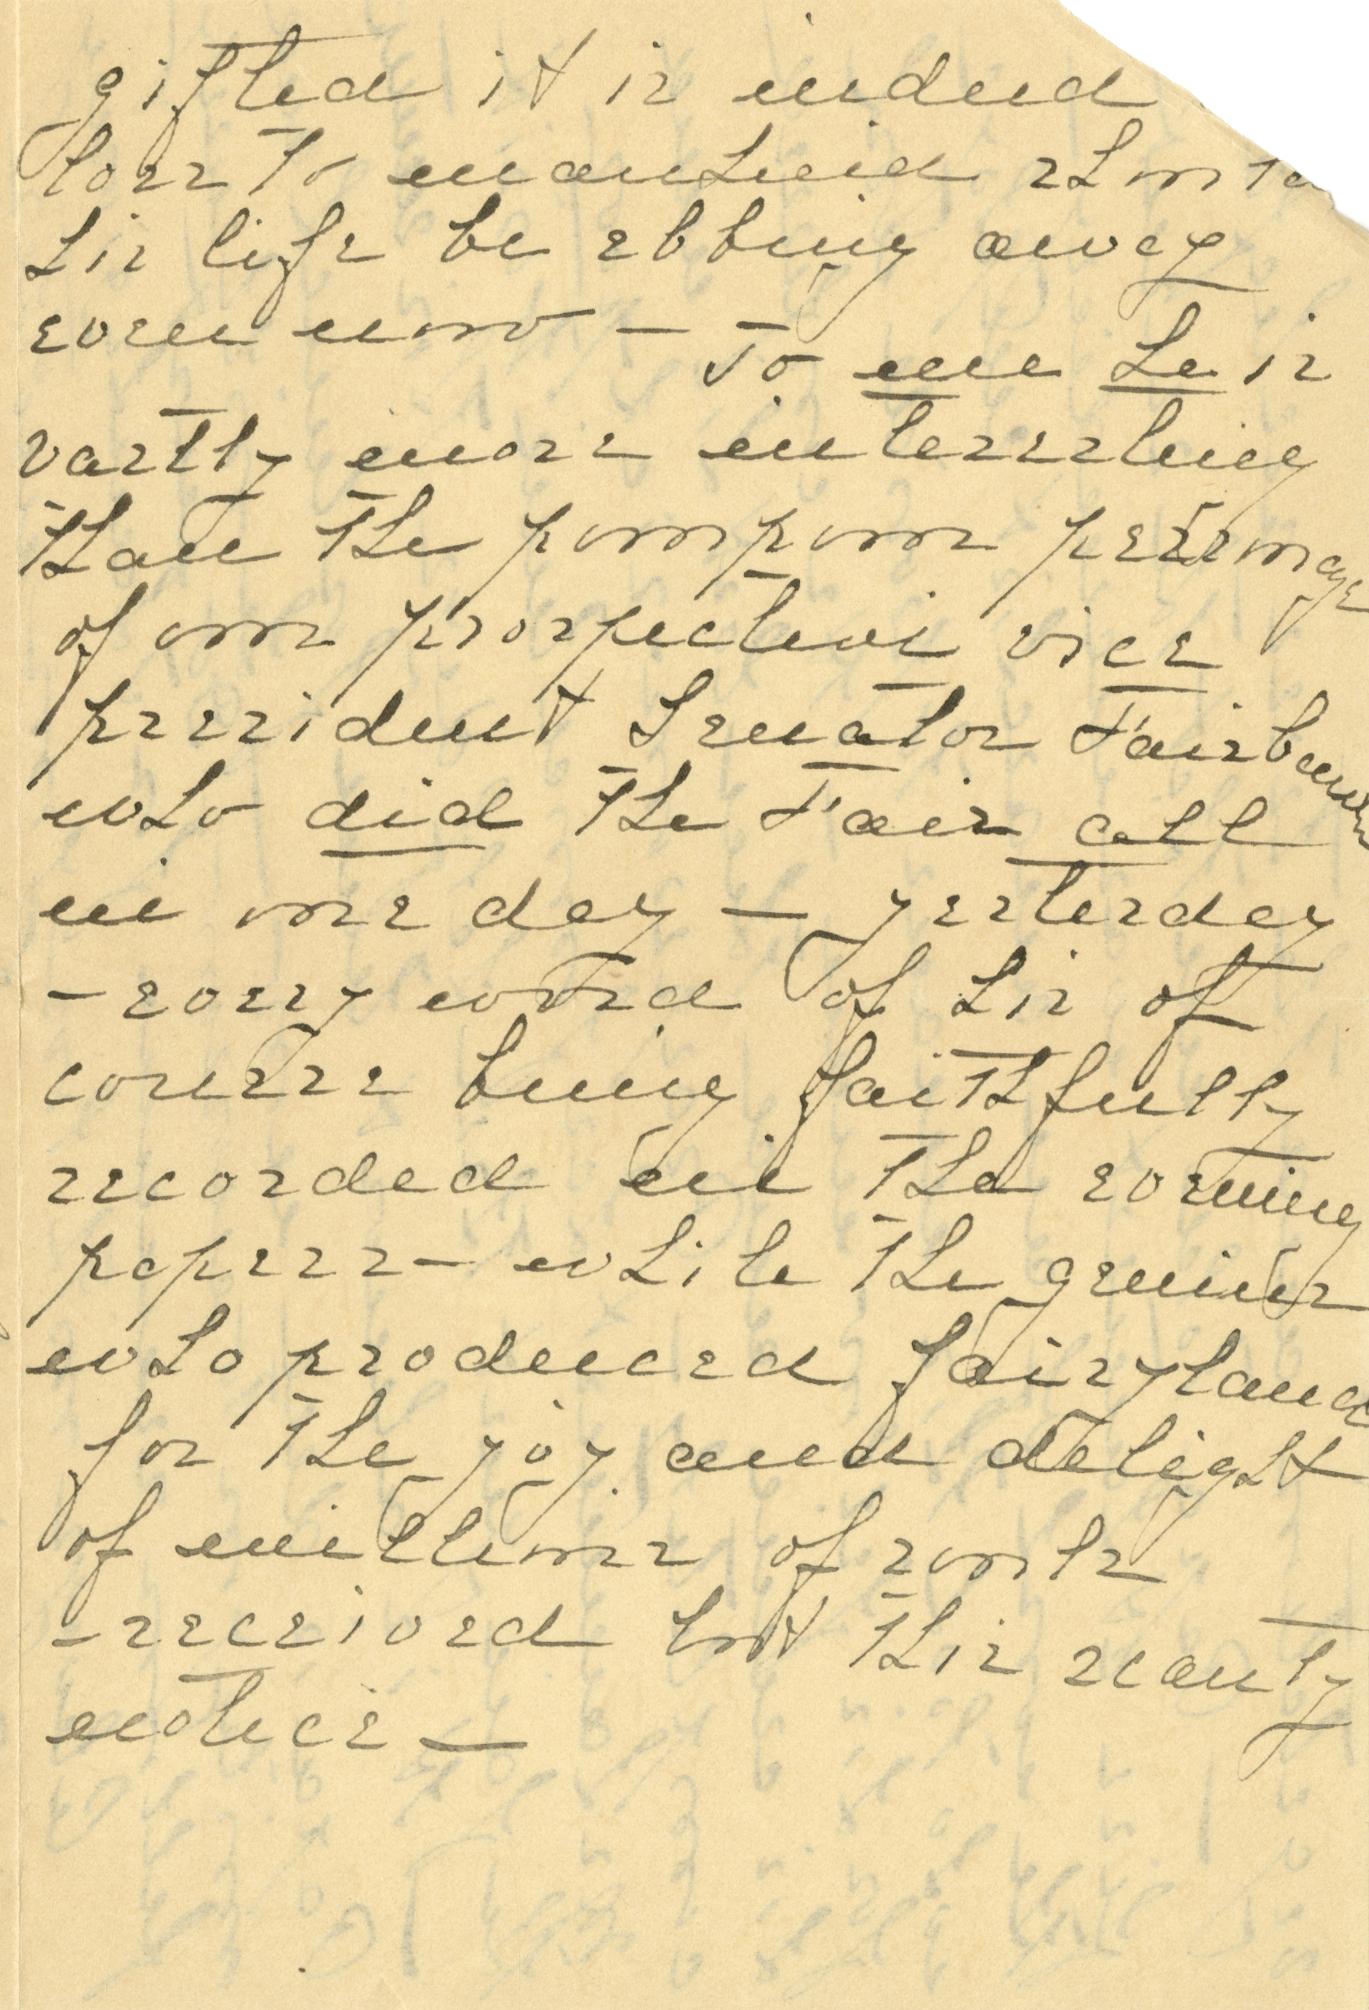 gifted it is indeed
loss to mankind should
his life be ebbing away
even now – To me he is
vastly more interesting
than the pompous personage
of our prospective vice
president Senator Fairbanks
who did the Fair all
in one day – yesterday
– every word of his of
course being faithfully
recorded in the evening
papers – while the genius
who produced fairyland
for the joy and delight
of millions of souls
– received but this scanty
notice –